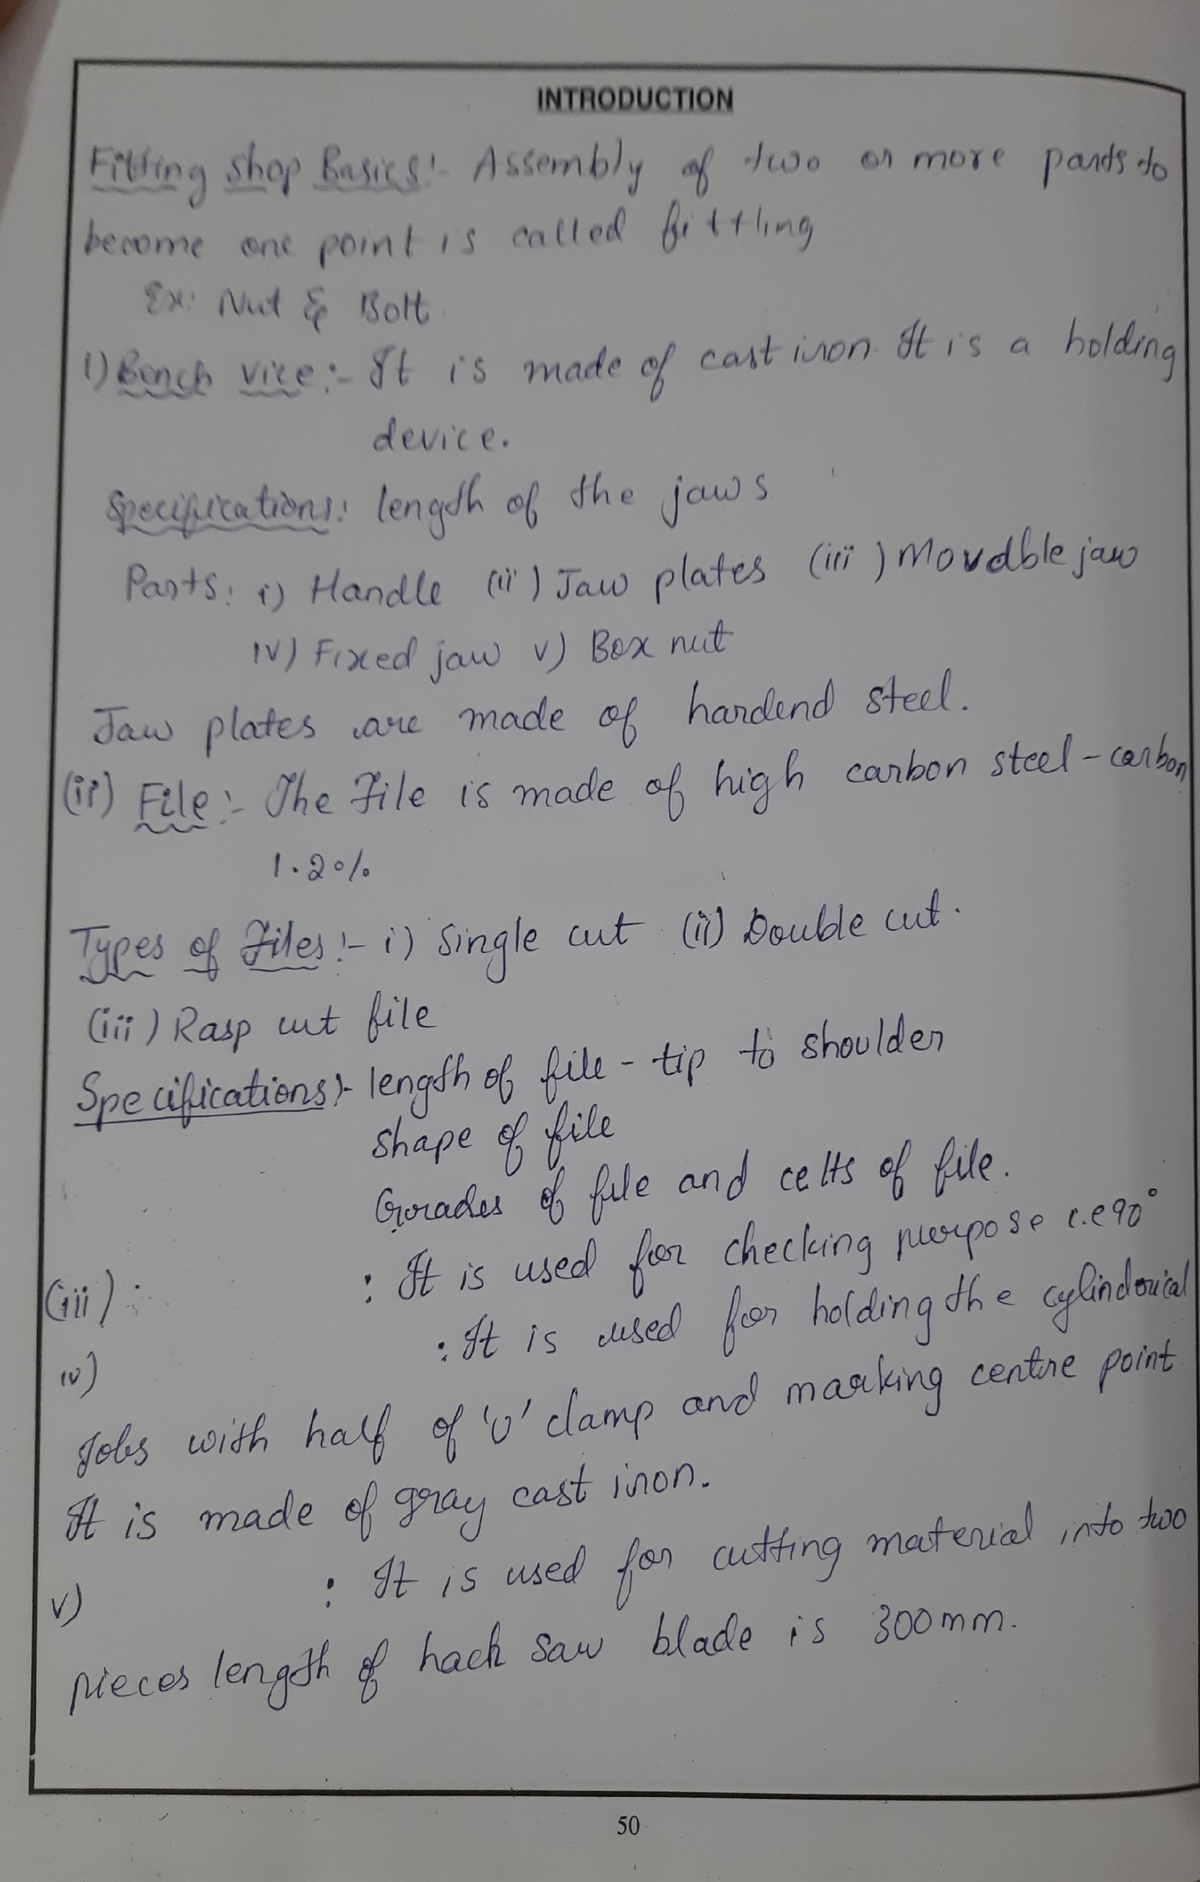 INTRODUCTION
Fitting Shop Basics:- Assembly of two or more parts to
become one point is called fittling
Ex: Nut & Bolt.
1) Bench vice:- It is made of cast iron. It is a holding
device.
Specifications: length of the jaws
Parts: i) Handle (ii) Jaw plates (iii) Movable jaw
iv) Fixed jaw v) Box nut
Jaw plates are made of hardend steel.
(ii) File:- The File is made of high carbon steel - carbon
1.2%
Types of Files:- i) Single cut (ii) Double cut.
(iii) Rasp cut file
Specifications:- length of file - tip to shoulder
shape of file
Grades of file and celts of file.
(iii) : : It is used for checking purpose i.e 90°
iv) : It is used for holding the cylindrical
Jobs with half of 'U' clamp and marking centre point
It is made of gray cast iron.
v) : It is used for cutting material into two
pieces length of hack saw blade is 300mm.
50